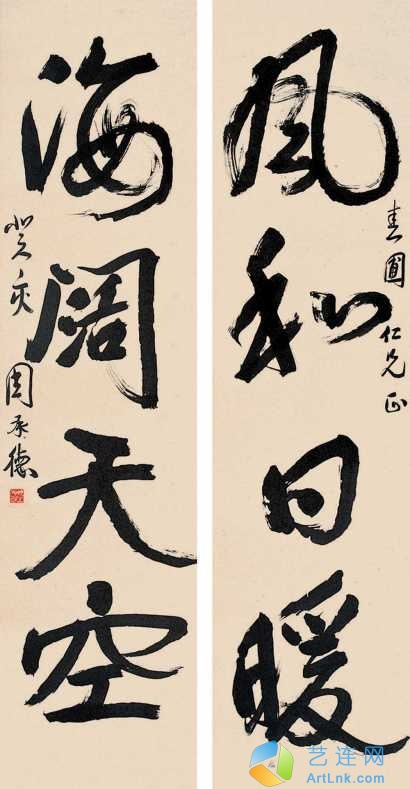 風和日暖
春圃仁兄正
海闊天空
癸亥 周承德
艺连网
ArtLnk.com